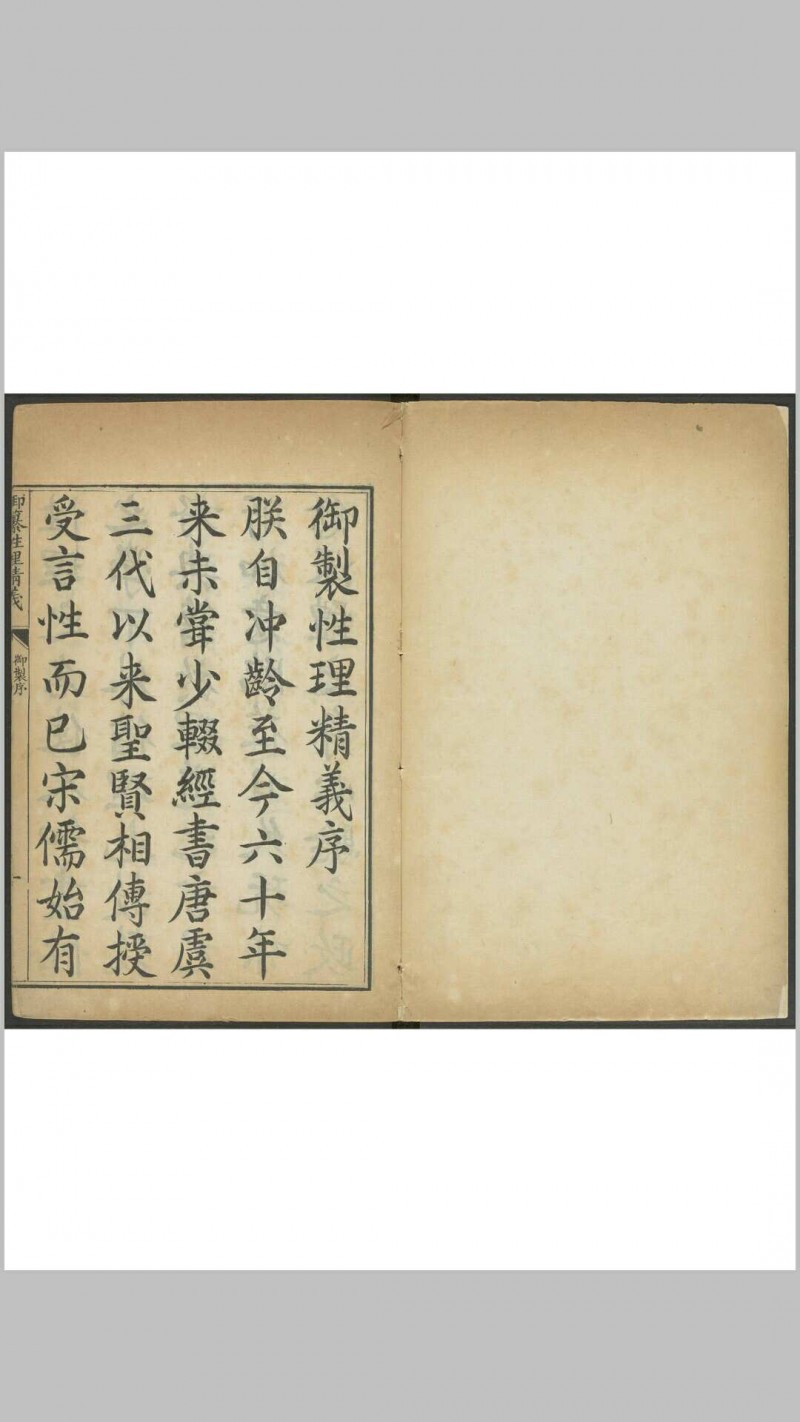 御製性理精義序
朕自冲齡至今六十年
来未甞少輟經書唐虞
三代以来聖賢相傳授
受言性而已宋儒始有
御纂性理精義
御製序
一